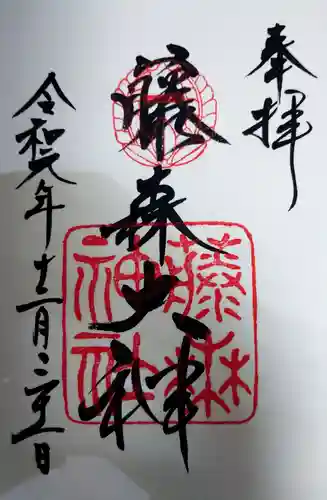 奉拝
藤森大神
藤森
神社
令和元年十一月二十三日